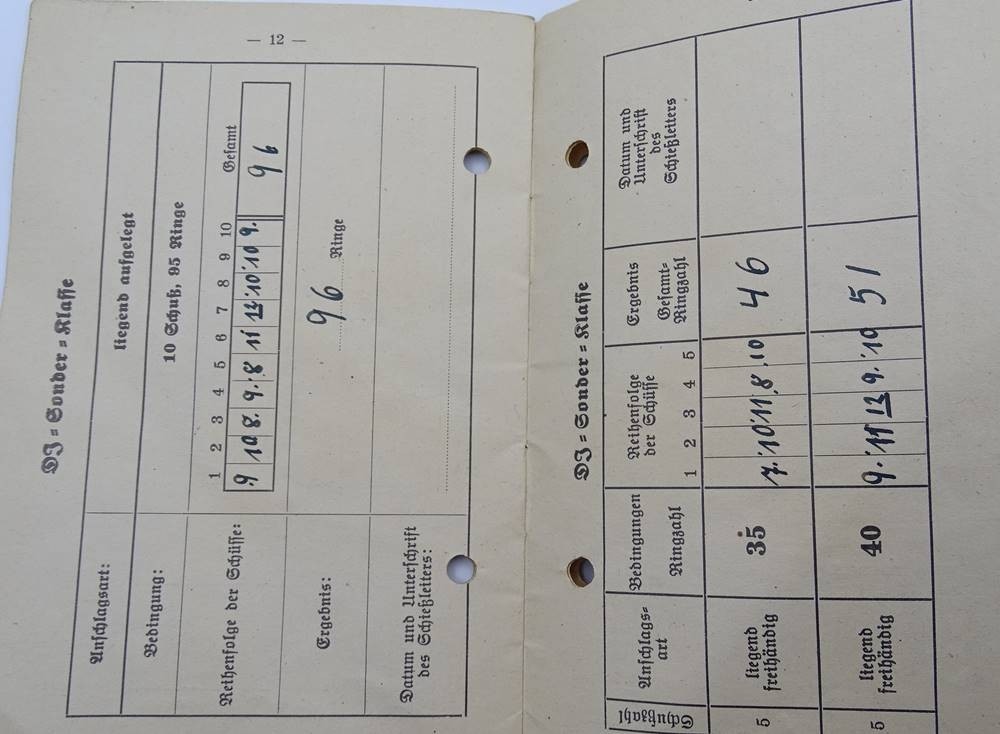 — 12 —
DJ-Sonder-Klasse
Anschlagsart: liegend aufgelegt
Bedingung: 10 Schuß, 95 Ringe
Reihenfolge der Schüsse: 1 2 3 4 5 6 7 8 9 10 Gesamt
9 10 8. 9. 8 11 12 10 10 9. 96
Ergebnis: 96 Ringe
Datum und Unterschrift
des Schießleiters:
DJ-Sonder-Klasse
Schußzahl
Anschlags-
art
Bedingungen
Ringzahl
Reihenfolge
der Schüsse
1 2 3 4 5
Ergebnis
Gesamt-
Ringzahl
Datum und
Unterschrift
des
Schießleiters
5 liegend
freihändig
35 7. 10 11 8. 10 46
5 liegend
freihändig
40 9. 11 12 9. 10 51